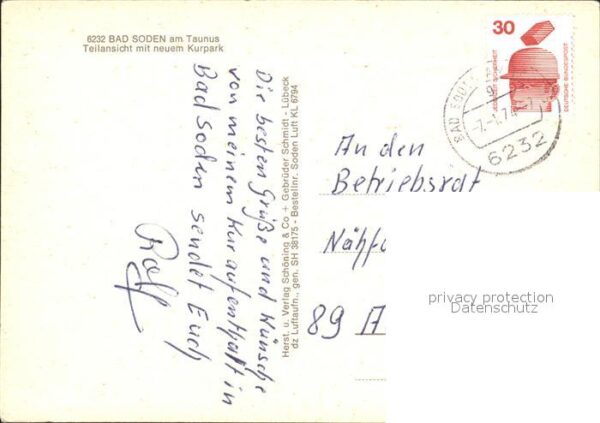 6232 BAD SODEN am Taunus
Teilansicht mit neuem Kurpark
Die besten Grüße und Wünsche
von meinem Kuraufenthalt in
Bad Soden sendet Euch
Rolf
Herst. u. Verlag Schöning & Co + Gebrüder Schmidt - Lübeck
dz Luftaufn., gen. SH 38175 - Bestellnr. Soden Luft KL 6794
30
JEDERZEIT SICHERHEIT
DEUTSCHE BUNDESPOST
BAD SODEN
6232
An den
Betriebsrat
Nähfa
89 A
privacy protection
Datenschutz